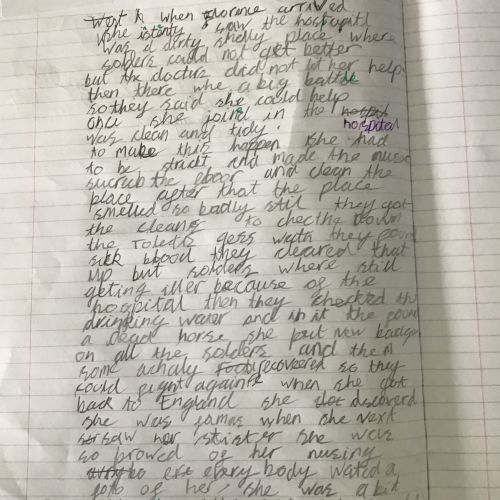 when Florence arrived
she saw the hospitil
was a dirty smelly place where
solders could not get better
but the docturs did not let her help
then there whe a big battle
so they said she could help
once she joind in the hospital
was clean and tidy.
to make this happen she had
to be strict and made the nurses
sucrub the floor and clean the
place after that the place
smelled so badly still they got
the cleans to checthe down
the Toleds gess wath they found
sick blood they cleared that
up but solders where still
geting iller because of the
hospital then they checked the
drinking water and in it the found
a dead horse she put new badges
on all the solders and then
some achaly recovered so they
could fight again when she got
back to England she discoverd
she was famas when she next
saw her sister she was
so prowd of her nursing
every body wated a
foto of her she was a bit